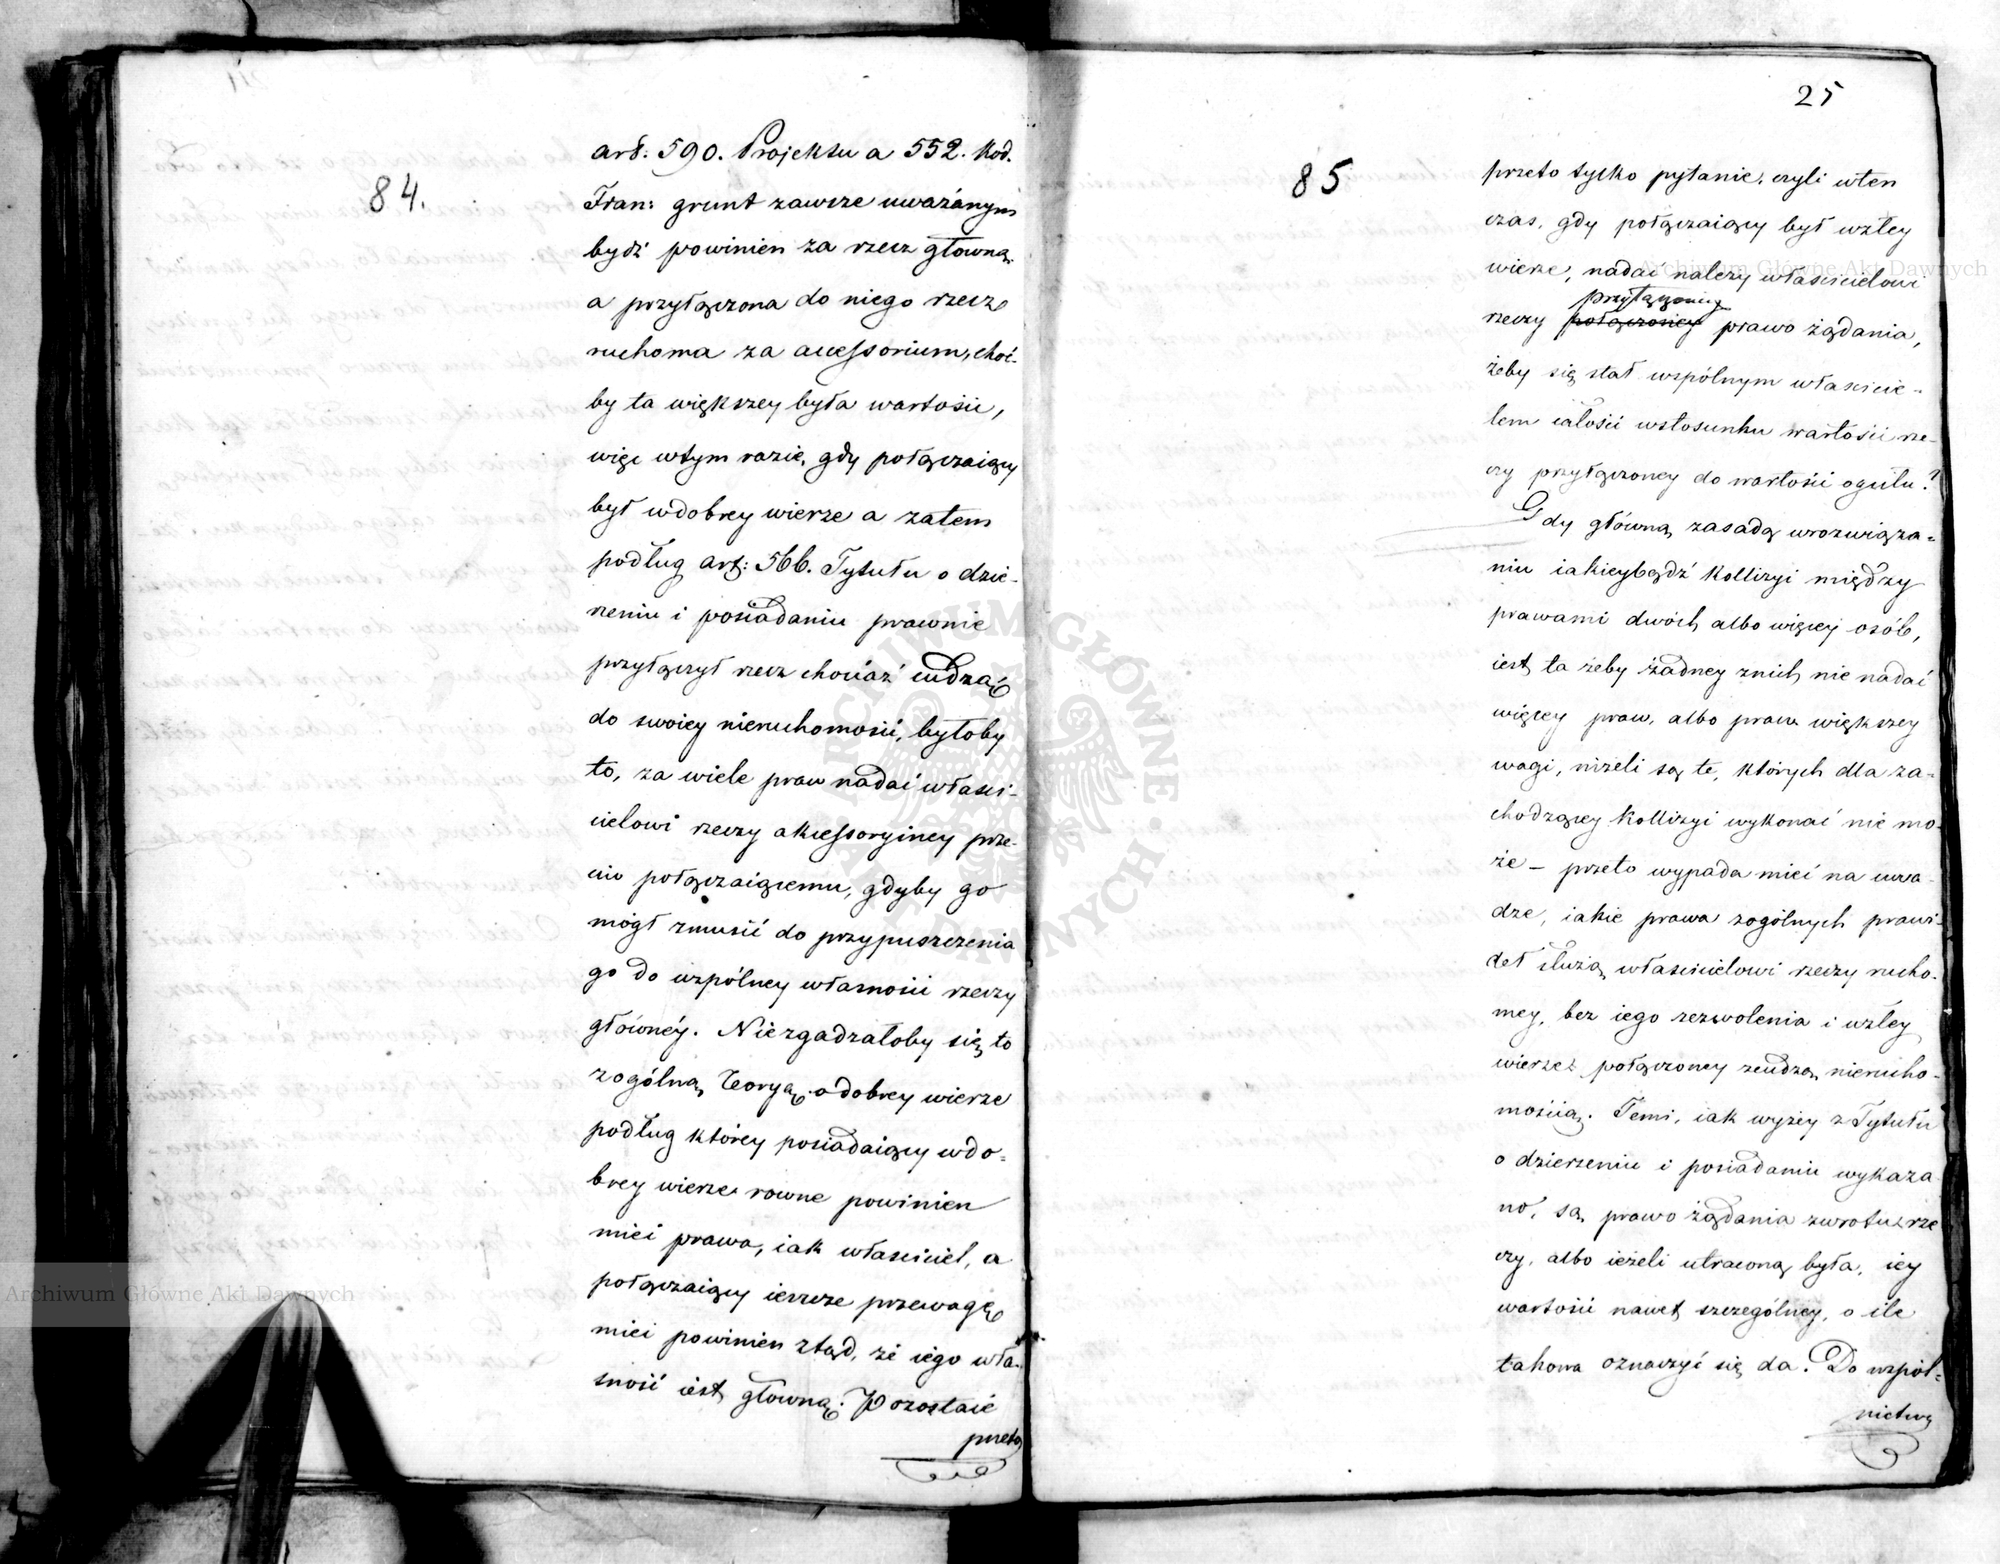 84.
art: 590. Projektu a 552. Kod.
Fran: grunt zawsze uważanym
bydź powinien za rzecz główną.
a przyłączona do niego rzecz
ruchoma za accessorium, choć-
by ta większey była wartości,
więc wtym razie, gdy połączaiący
był wdobrey wierze a zatem
podług art: 566. Tytułu o dzie-
rzeniu i posiadaniu prawnie
przyłączył rzecz chociaż cudzą
do swoiey nieruchomości, byłoby
to, za wiele praw nadać właści-
cielowi rzeczy akcessoryiney prze-
ciw połączaiącemu, gdyby go
mógł zmusić do przypuszczenia
go do wspólney własności rzeczy
główney. Niezgadzałoby się to
zogólną Teoryą o dobrey wierze
podług którey posiadaiący wdo-
brey wierze rowne powinien
mieć prawa, iak właściciel, a
połączaiący ieszcze przewagę
mieć powinien ztąd, że iego wła-
sność iest główną. Pozostaie
przeto
25
85
przeto tylko pytanie, czyli wten
czas, gdy połączaiący był wzłey
wierze, nadać należy właścicielowi
przyłączoney
rzeczy połączoney prawo żądania,
żeby się stał wspólnym właścicie-
lem całości wstosunku wartości rze-
czy przyłączoney do wartości ogułu?
Gdy główną zasadą wrozwiąza-
niu iakieybądź kollizyi między
prawami dwóch albo więcey osób,
iest ta żeby żadney znich nie nadać
więcey praw, albo praw większey
wagi, niżeli są te, których dla za-
chodzącey kollizyi wykonać nie mo-
że — przeto wypada mieć na uwa-
dze, iakie prawa zogólnych prawi-
deł służą właścicielowi rzeczy rucho-
mey, bez iego zezwolenia i wzłey
wierze połączoney zcudzą nierucho-
mością. Temi, iak wyżey z Tytułu
o dzierzeniu i posiadaniu wykaza
no, są prawo żądania zwrotu rze
czy, albo ieżeli utraconą była, iey
wartości nawet szczególney, o ile
takowa oznaczyć się da. Do wspól-
nictwa
Archiwum Główne Akt Dawnych
Archiwum Główne Akt Dawnych
ARCHIWUM GŁÓWNE AKT DAWNYCH